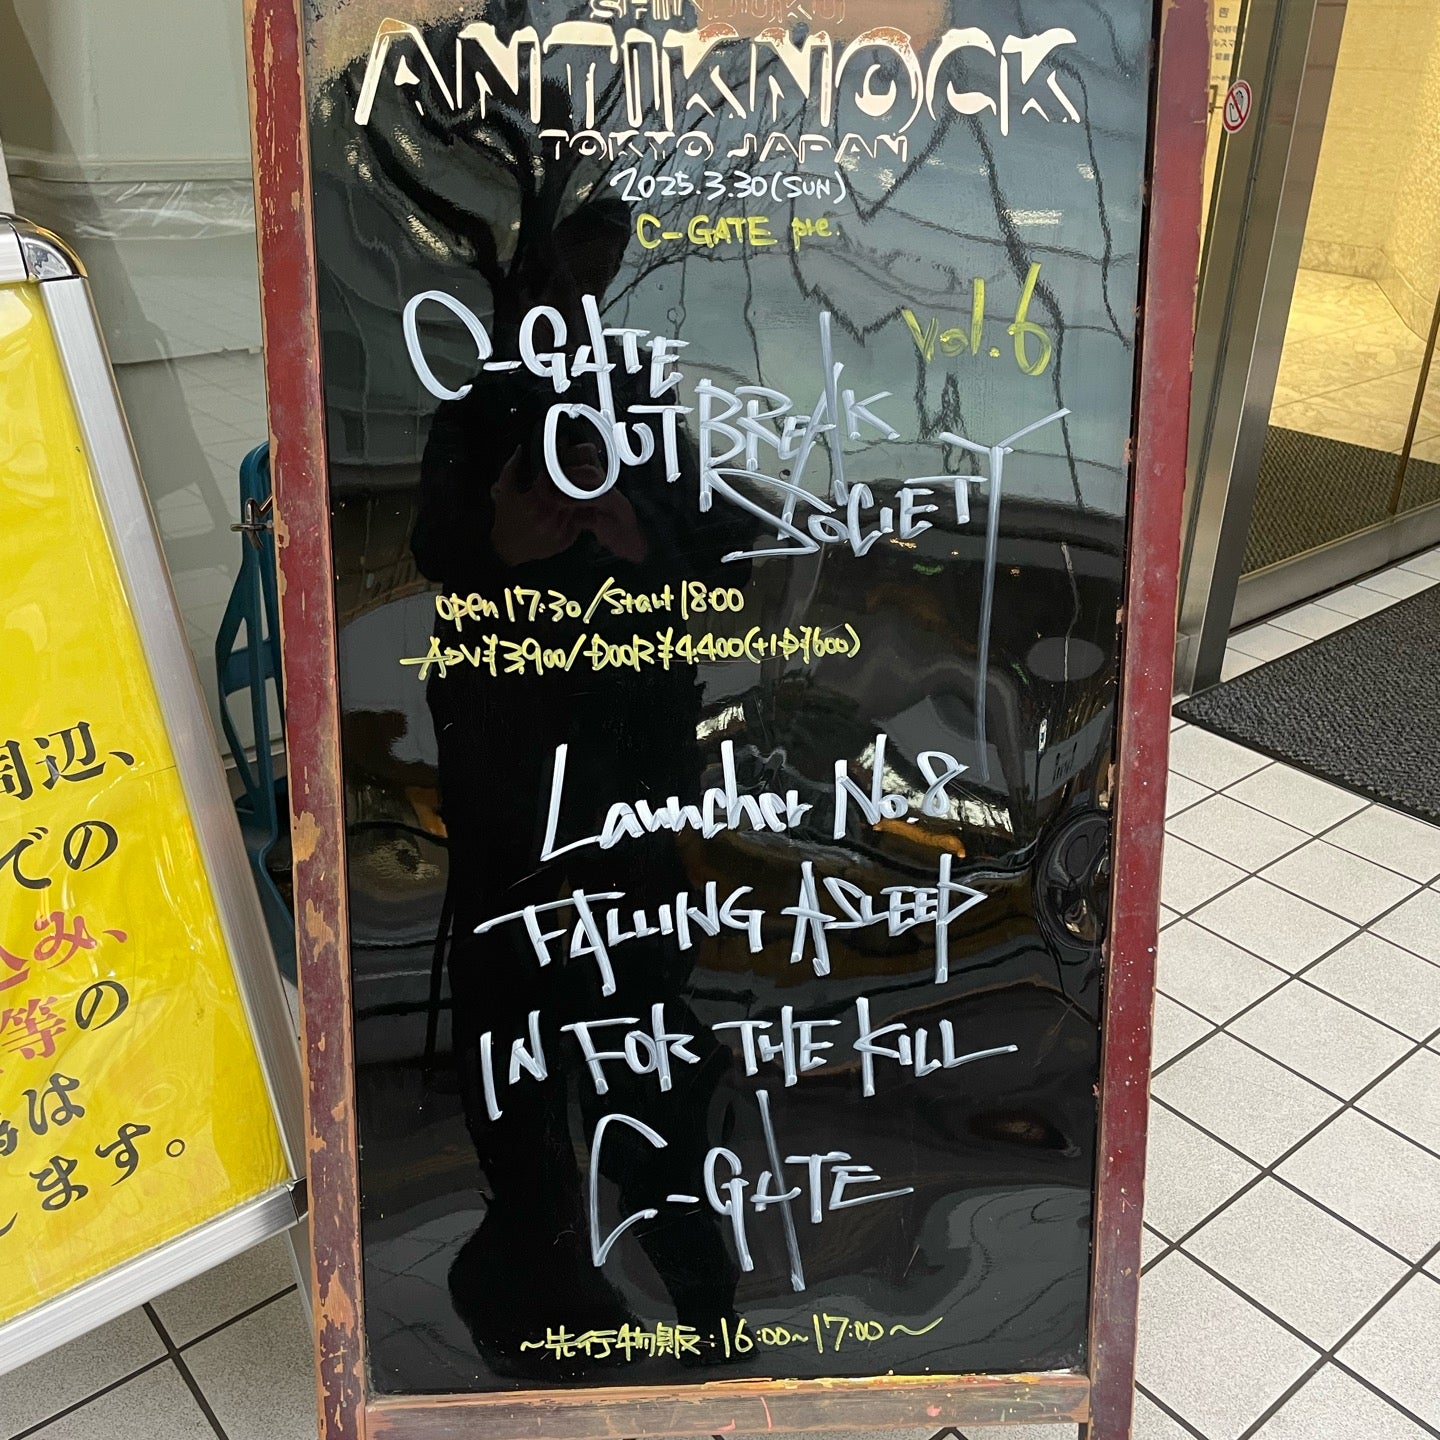 SHINJUKU
ANTIKNOCK
TOKYO JAPAN
2025.3.30(SUN)
C-GATE pre.
C-GATE
OUTBREAK
SOCIETY
vol.6
open17:30/Start18:00
ADV¥3,900/DOOR¥4.400(+1D¥600)
Launcher No.8
FALLING ASLEEP
IN FOR THE KILL
C-GATE
~先行物販:16:00~17:00~
周辺、
での
込み、
等の
は
ます。